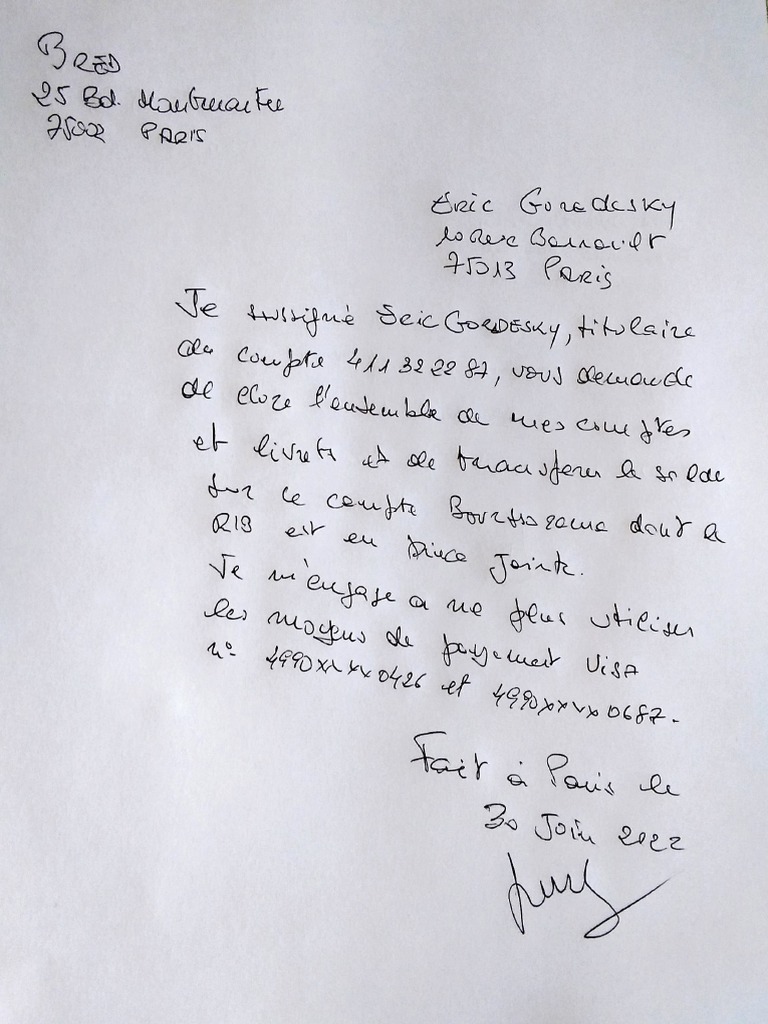 BRED
25 Bd. Montmartre
75002 PARIS
Eric Goredesky
10 Rue Barrault
75013 PARIS
Je soussigné Eric GORDESKY, titulaire
du compte 411 32 22 87, vous demande
de clore l'ensemble de mes comptes
et livrets et de transférer le solde
sur le compte Boursorama dont le
RIB est en pièce jointe.
Je m'engage a ne plus utiliser
les moyens de payement VISA
n° 4990xxxx0426 et 4990xxxx0687.
Fait à Paris le
30 Juin 2022